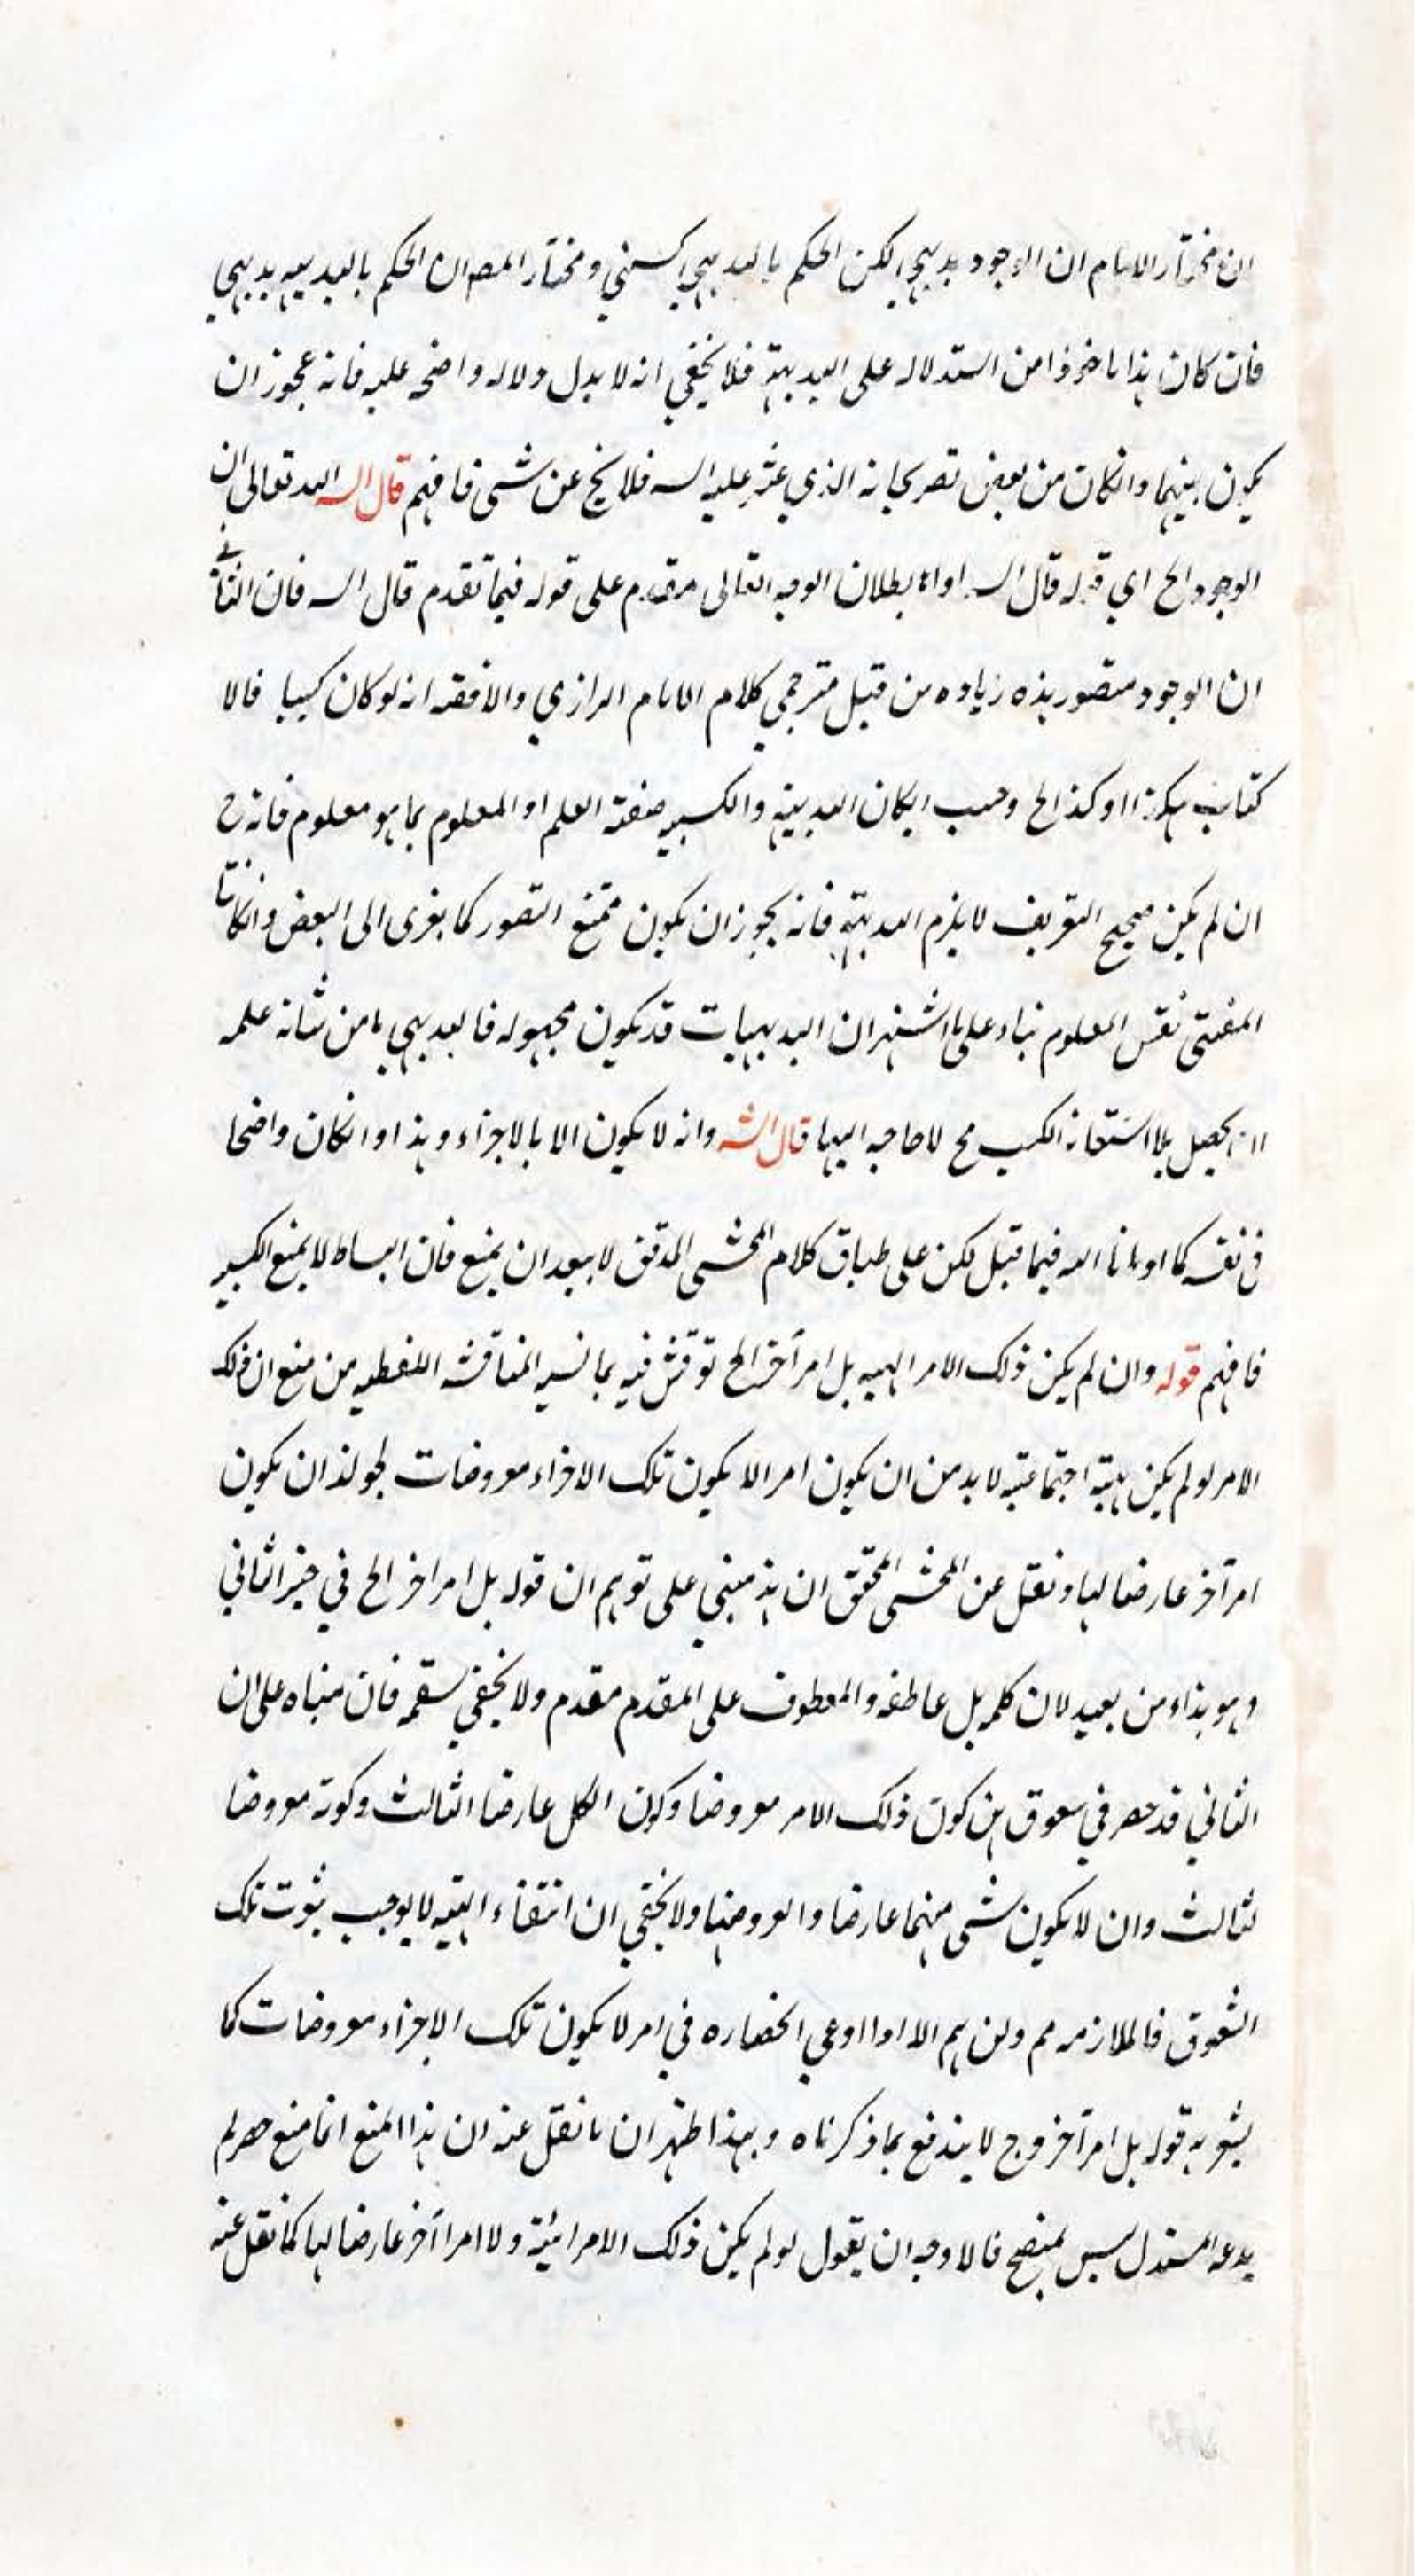 ان مختار الامام ان الوجود بديهي لكن الحكم بالبديهي كسبي ومختار المصـ ان الحكم بالبديهيه بديهي
فان كان هذا ماخوذا من استدلاله على البديهة فلا يخفي انه لا يدل دلاله واضحه عليه فانه يجوز ان
يكون بينهما وانكان من بعض تصريحاته الذي عثر عليه السه فلا يخ عن شى فافهم قال السه الله تعالى ان
الوجود الخ اي قوله قال السه اما بطلان الوجه مقدم على قوله فيما تقدم قال السه فان الثاني
ان الوجود متصور هذه زياده من قبل مترجمي كلام الامام الرازي والافقه انه لو كان كسبيا فالا
او كذا الخ وحسب البديهية والكسبيه صفة العلم او المعلوم بما هو معلوم فانه ح
ان لم يكن صحيح التعريف لا يلزم البديهة فانه يجوز ان يكون ممتنع التصور كما يغرى الى البعض وانكانتا
نفس المعلوم بناء على ما اشتهر ان البديهيات قد يكون مجهوله فالبديهي ما من شانه علمه
ان يحصل بلا استعانه الكسب مح لا حاجه اليها قال الشه وانه لا يكون الا بالاجزاء وهذا وانكان واضحا
في نفسه كما فيما قبل لكن على طباق كلام المحشى المدقق لا يبعد ان يمنع فان البساط لا يمنع الكسبيه
فافهم قوله وان لم يكن ذلك الامر الهييه بل امر آخر الخ نوقش فيه بما المناقشه اللفظيه من منع ان ذلك
الامر لو لم يكن هيئة اجتماعيته لا بد من ان يكون امر الا يكون تلك الاجزاء معروضات لجواز ان يكون
امر آخر عارضا لها ونقل عن المحشى المحقق ان هذ مبني على توهم ان قوله بل امر اخر الخ في حيز الثاني
وهو بذاء من بعيد لان كلمه بل عاطفه والمعطوف على المقدم مقدم ولا يخفي سقمه فان مبناه على ان
الثاني قد حصر في شقوق هن كون ذلك الامر معروضا وكون الكل عارضا الثالث وكونه معروضا
لثالث وان لا يكون شى منهما عارضا ولا يخفي ان انتفاء الهيه لا يوجب ثبوت تلك
الشقوق فالملازمه مم ولن يتم الا اذا ادعي انحصاره في امر لا يكون تلك الاجزاء معروضات كما
يشعر به قوله بل امر آخر وح لا يندفع بما ذكرناه وبهذا ظهر ان ما نقل عنه ان هذا المنع انما منع حصر لم
يدعه المستدل ليس بمتضح فالاوجه ان يقول لو لم يكن ذلك الامر هيئة ولا امرا آخر عارضا لها كما نقل عنه